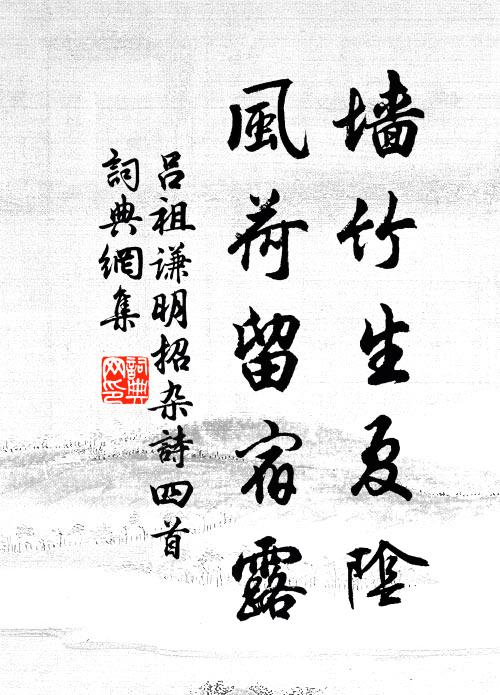 墻竹生夏陰
風荷留宿露
呂祖谦明招杂詩四首
詞典網集
詞典网印